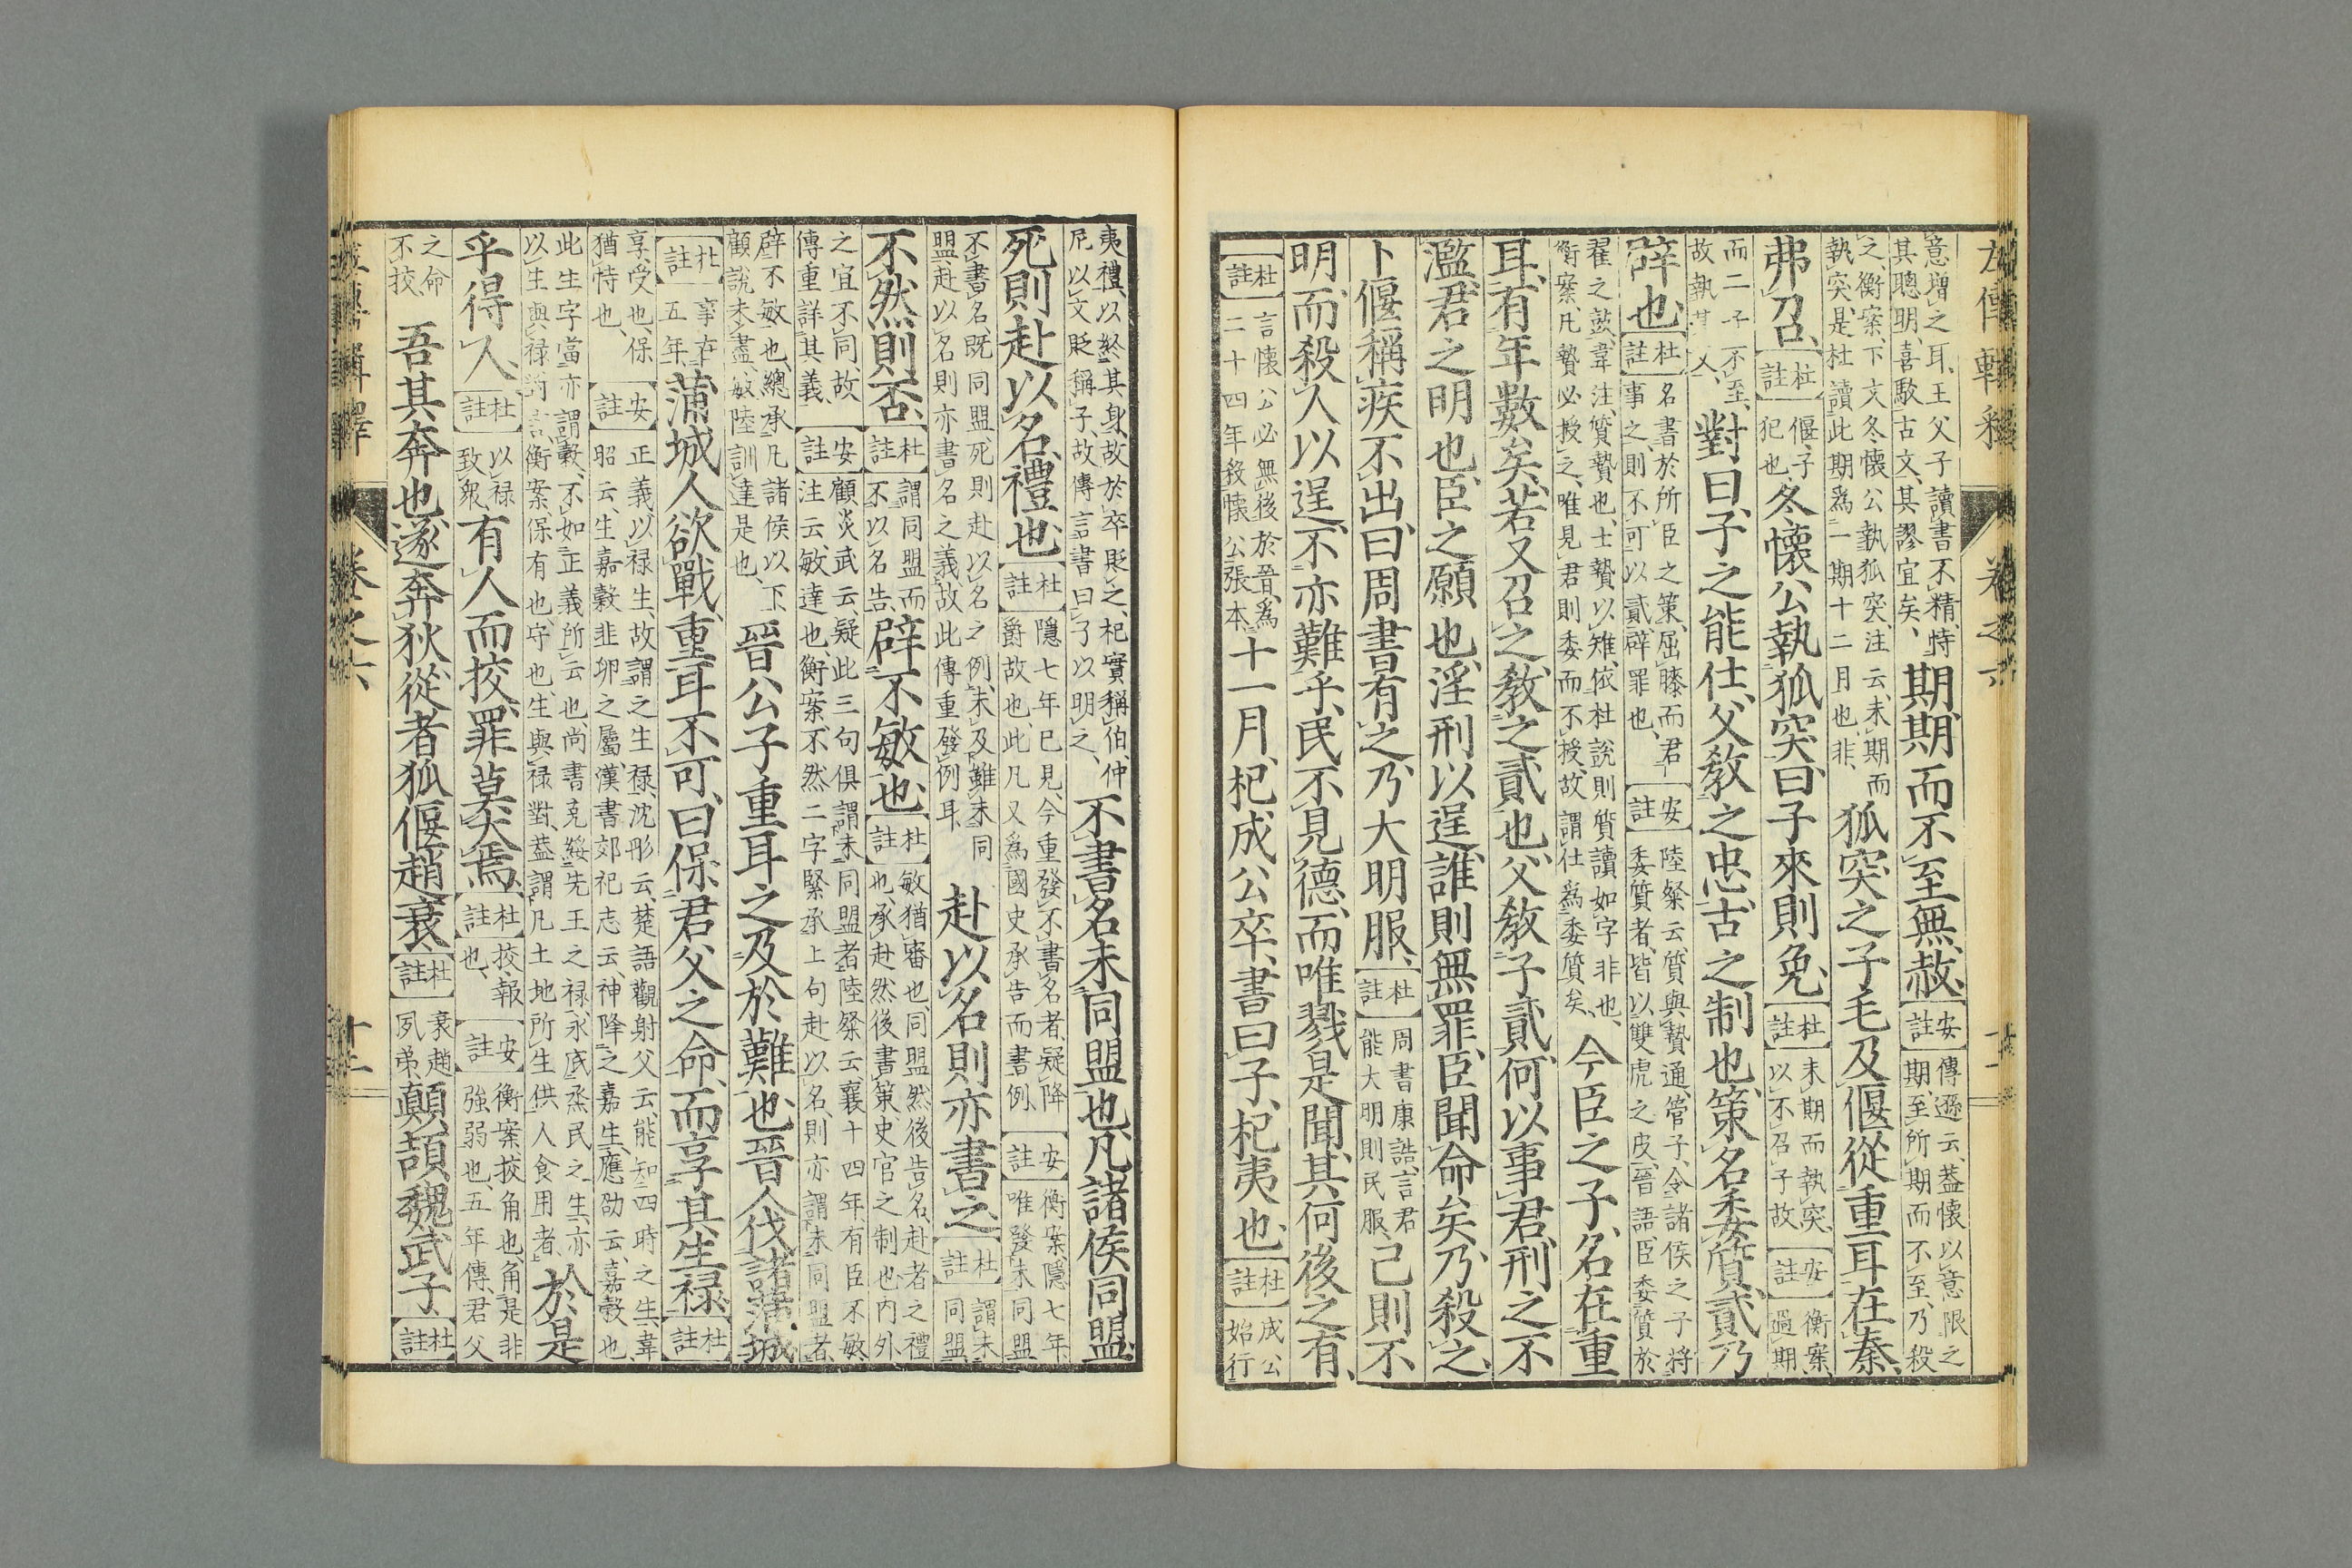 左傳輯釋 卷之六 十一
意增之耳、王父子讀書不精、恃其聰明、喜駁古文、其謬宜矣、期、期而不至無赦、安註傅遜云、蓋懷以意限之期、至所期而不至、乃殺
之、衡案、下文冬懷公執狐突、注云、未期而執突、是杜讀此期爲一期十二月也、非、狐突之子毛及偃從重耳在秦、
弗召、杜註偃、子犯也、冬、懷公執狐突、曰、子來則免、杜註未期而執突、以不召子故、安註衡案、過期
而二子不至、故執其父、對曰、子之能仕、父敎之忠、古之制也、策名委質、貳乃
辟也、杜註名書於所臣之策、屈膝而君事之、則不可以貳、辟罪也、安註陸粲云、質與贄通、管子、令諸侯之子將委質者、皆以雙虎之皮、晉語、臣委質於
翟之鼓、韋注、質贄也、士贄以雉、依杜說則質讀如字、非也、衡案、凡贄必授之、唯見君則委而不授、故謂仕爲委質矣、今臣之子、名在重
耳、有年數矣、若又召之、敎之貳也、父敎子貳、何以事君、刑之不
濫、君之明也、臣之願也、淫刑以逞、誰則無罪、臣聞命矣、乃殺之、
卜偃稱疾不出、曰、周書有之、乃大明服、杜註周書康誥、言君能大明則民服、己則不
明、而殺人以逞、不亦難乎、民不見德、而唯戮是聞、其何後之有、
杜註言懷公必無後於晉、爲二十四年殺懷公張本、十一月、杞成公卒、書曰子、杞夷也、杜註成公始行
夷禮、以終其身、故於卒貶之、杞實稱伯、仲尼以文貶稱子、故傳言書曰子以明之、不書名、未同盟也、凡諸侯同盟、
死則赴以名、禮也、杜註隱七年已見、今重發不書名者、疑降爵故也、此凡又爲國史承告而書例、安註衡案、隱七年唯發未同盟
不書名、既同盟、死則赴以名之例、未及雖未同盟、赴以名則亦書名之義、故此傳重發例耳、赴以名、則亦書之、杜註謂未同盟
不然則否、杜註謂同盟而不以名告、辟不敏也、杜註敏猶審也、同盟然後告名、赴者之禮也、承赴然後書策、史官之制也、內外
之宜不同、故傳重詳其義、安註顧炎武云、疑此三句俱謂未同盟者、陸粲云、襄十四年、有臣不敏、注云、敏達也、衡案、不然二字緊承上句赴以名、則亦謂未同盟者、
辟不敏也、總承凡諸侯以下、顧說未盡、敏陸訓達是也、晉公子重耳之及於難也、晉人伐諸蒲城、
杜註事在五年、蒲城人欲戰、重耳不可、曰、保君父之命、而享其生祿、杜註
享、受也、保猶恃也、安註正義、以祿生、故謂之生祿、沈彤云、楚語觀射父云、能知四時之生、韋昭云、生嘉穀韭卵之屬、漢書郊祀志云、神降之嘉生、應劭云、嘉穀也、
此生字當亦謂穀、不如正義所云也、尚書克綏先王之祿、永厎烝民之生、亦以生與祿對言、衡案、保有也、守也、生與祿對、蓋謂凡土地所生供人食用者、於是
乎得人、杜註以祿致衆、有人而挍、罪莫大焉、杜註挍、報也、安註衡案、挍角也、角是非強弱也、五年傳、君父
之命不挍、吾其奔也、遂奔狄、從者狐偃、趙衰、杜註衰、趙夙弟、顚頡、魏武子、杜註
左傳輯釋 卷之六 十二